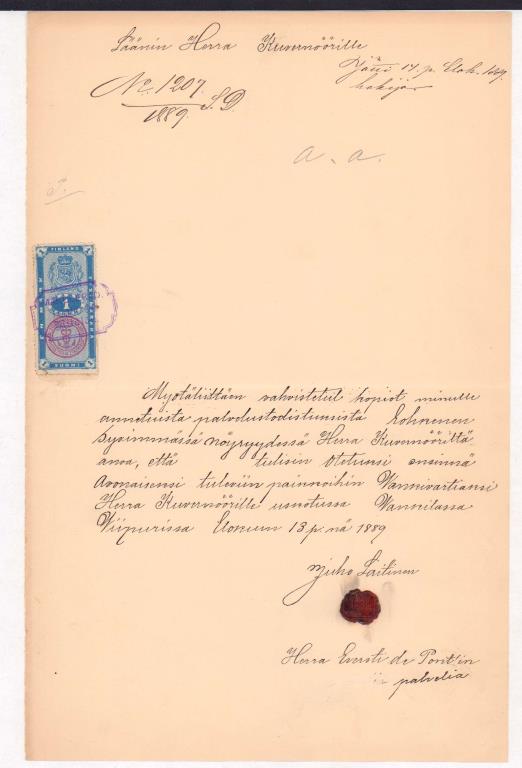 Läänin Herra Kuvernöörille
Jätti 14 p. Elok. 1889.
hakija
No. 1207.
1889. S.D.
a. a.
1 FINLAND 1
1
1 SUOMI 1
Myötäliittäen vahvistetut kopiot minulle
annetuista palvelustodistuksista Rohkenen
syvimmässä nöyryydessä Herra Kuvernööriltä
anoa, että tulisin Otetuksi ensinnä
Avonaiseksi tuleviin paikkoihin Wanninvartiaksi
Herra Kuvernöörille uskotussa Wankilassa
Viipurissa Elokuun 13 p:nä 1889
Juho Laitinen
Herra Eversti de Pont'in
palvelia